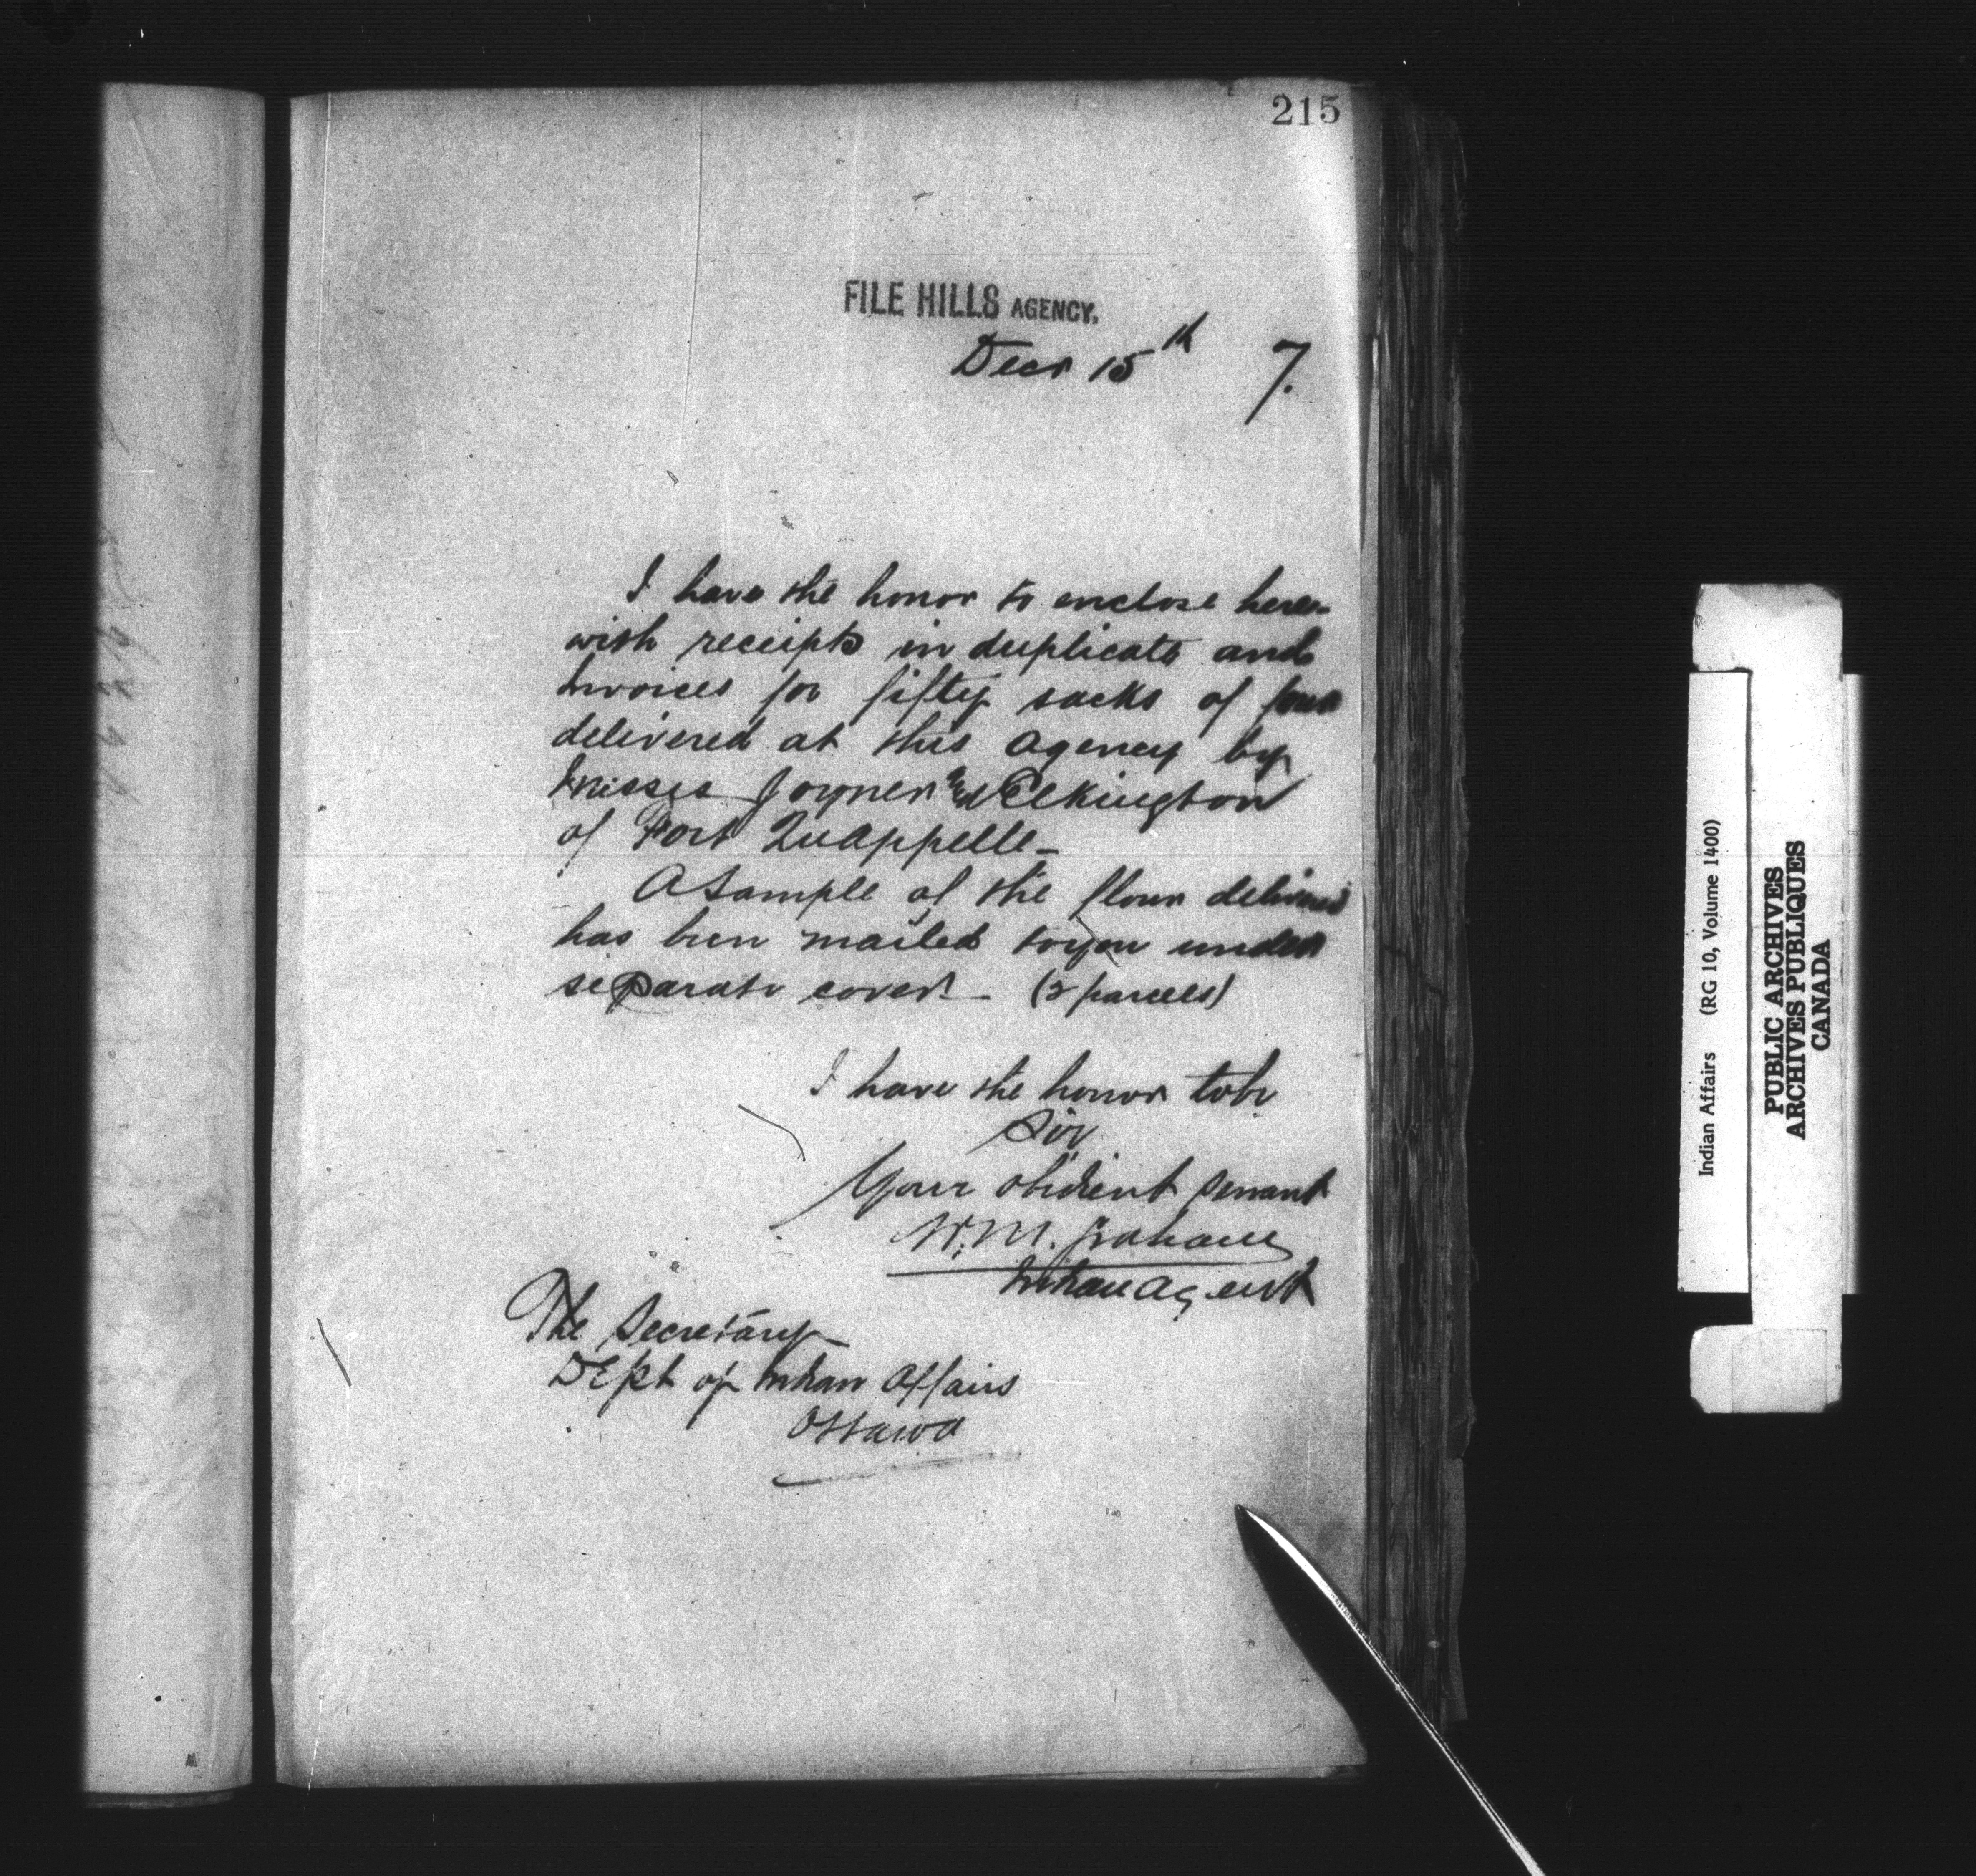 215
FILE HILLS AGENCY.
Decr 15th 7.
I have the honor to enclose here-
with receipts in duplicate and
Invoices for fifty sacks of flour
delivered at this Agency by
Messrs Joyner & Elkington
of Fort Qu'Appelle-
A sample of the flour delivered
has been mailed to you under
separate cover - (2 parcels)
I have the honor to be
Sir
Your obedient servant
W. M. Graham
Indian Agent
The Secretary
Dept of Indian Affairs
Ottawa
Indian Affairs (RG 10, Volume 1400)
PUBLIC ARCHIVES
ARCHIVES PUBLIQUES
CANADA